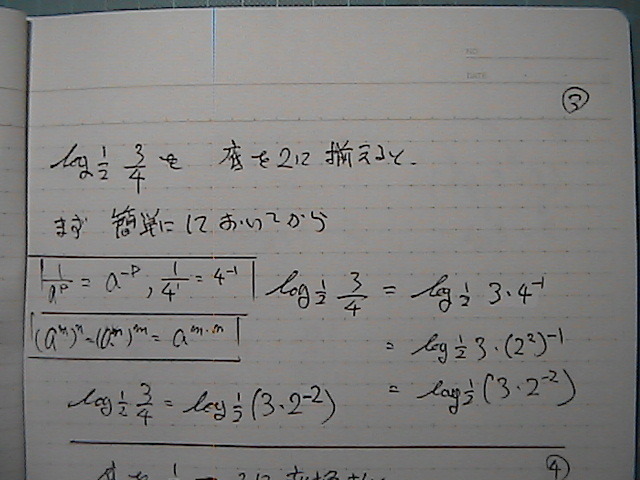 NO.
DATE
③
log 1/2 3/4 を 底を2に揃えると.
まず 簡単に しておいてから
1/a^p = a^-p, 1/4^1 = 4^-1
log 1/2 3/4 = log 1/2 3・4^-1
(a^m)^n = (a^n)^m = a^m・n
= log 1/2 3・(2^2)^-1
= log 1/2 (3・2^-2)
log 1/2 3/4 = log 1/2 (3・2^-2)
④